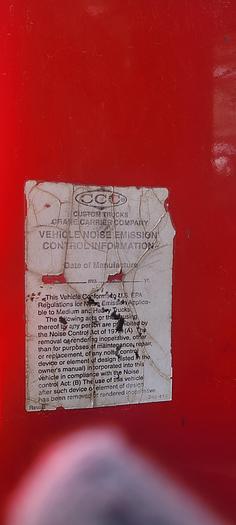 CCC
CUSTOM TRUCKS
CRANE CARRIER COMPANY
VEHICLE NOISE EMISSION
CONTROL INFORMATION
Date of Manufacture
MO. YR.
This Vehicle Conforms to U.S. EPA
Regulations for Noise Emission Applica-
ble to Medium and Heavy Trucks.
The following acts or the causing
thereof by any person are prohibited by
the Noise Control Act of 1972: (A) The
removal or rendering inoperative, other
than for purposes of maintenance, repair,
or replacement, of any noise control
device or element of design (listed in the
owner's manual) incorporated into this
vehicle in compliance with the Noise
control Act: (B) The use of this vehicle
after such device or element of design
has been removed or rendered inoperative.